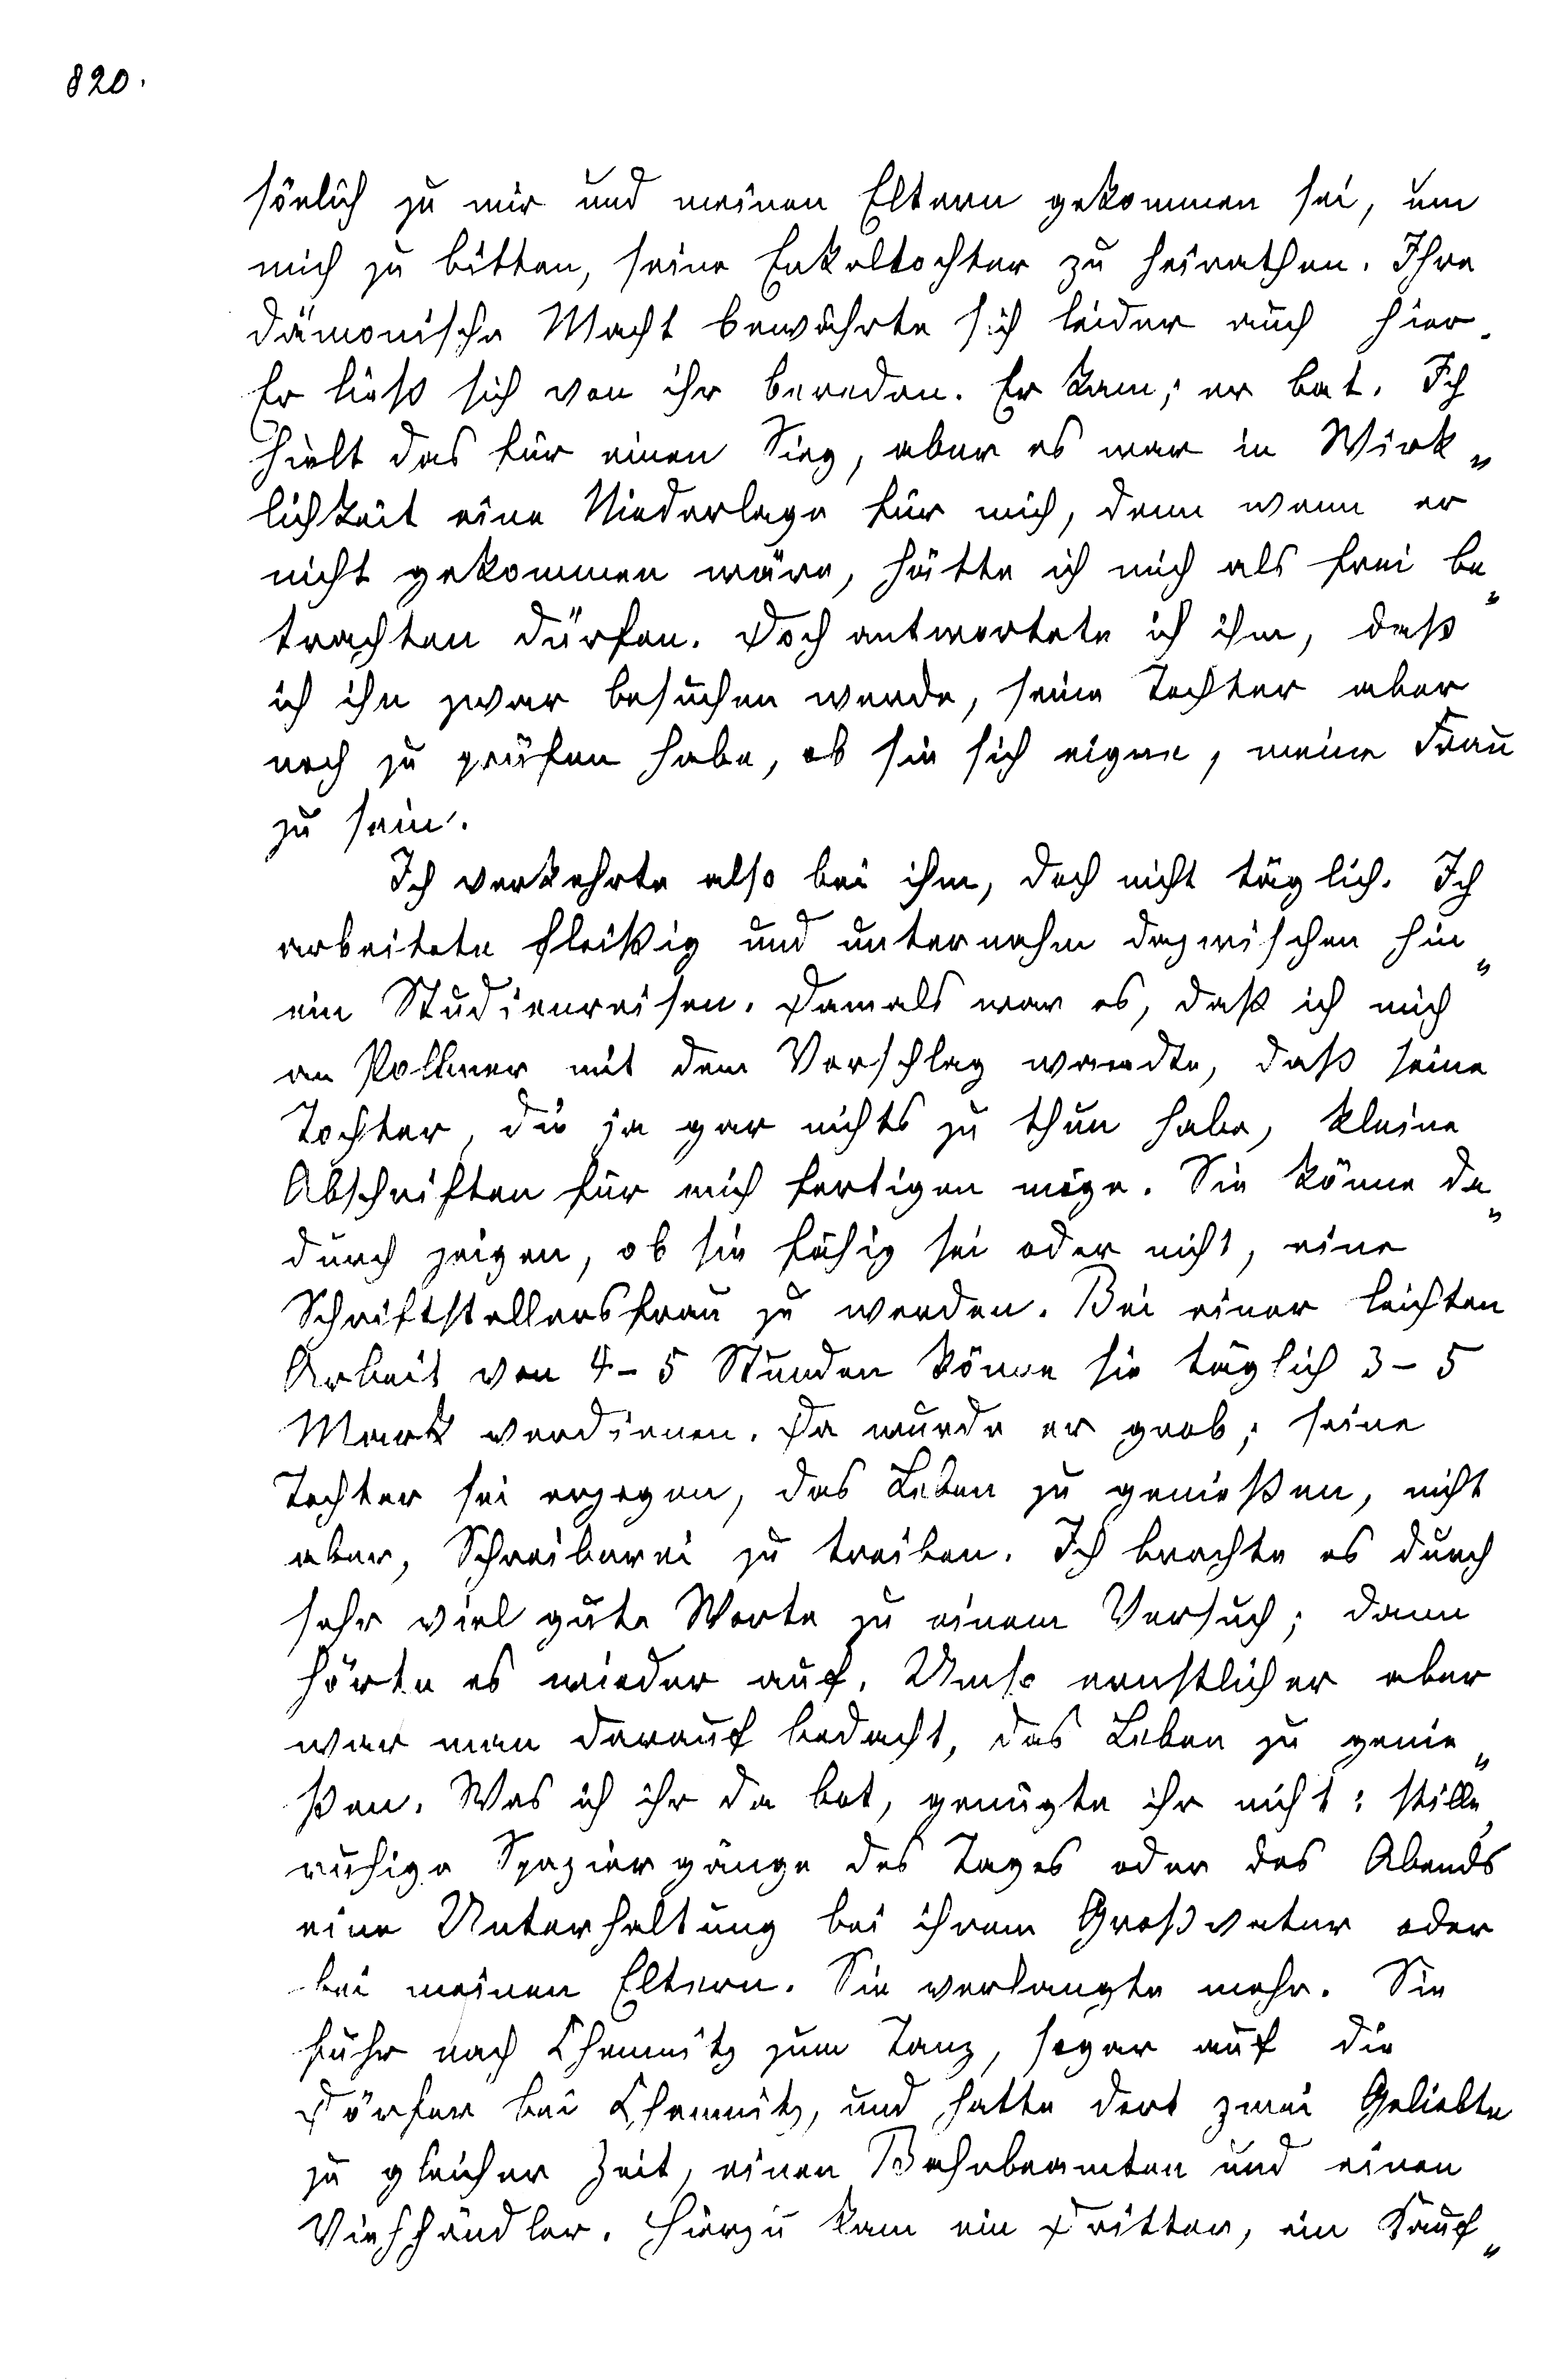 820.
sönlich zu mir und meinen Eltern gekommen sei, um
mich zu bitten, seine Enkeltochter zu heirathen. Ihre
dämonische Macht bewährte sich leider auch hier.
Er ließ sich von ihr bereden. Er kam; er bat. Ich
hielt das für einen Sieg, aber es war in Wirk„
lichkeit eine Niederlage für mich, denn wenn er
nicht gekommen wäre, hätte ich mich als frei be„
trachten dürfen. Doch antwortete ich ihm, daß
ich ihn zwar besuchen werde, seine Tochter aber
noch zu prüfen habe, ob sie sich eigne, meine Frau
zu sein.
Ich verkehrte also bei ihm, doch nicht täglich. Ich
arbeitete fleißig und unternahm dazwischen hin„
ein Studienreisen. Damals war es, daß ich mich
an Pollmer mit dem Vorschlag wandte, daß seine
Tochter, die ja gar nichts zu thun habe, kleine
Abschriften für mich fertigen möge. Sie könne da„
durch zeigen, ob sie fähig sei oder nicht, eine
Schriftstellersfrau zu werden. Bei einer leichten
Arbeit von 4–5 Stunden könne sie täglich 3–5
Mark verdienen. Da wurde er grob; seine
Tochter sei erzogen, das Leben zu genießen, nicht
aber, Schreiberei zu treiben. Ich brachte es durch
sehr viel gute Worte zu einem Versuch; dann
hörte es wieder auf. Umso ernstlicher aber
war man darauf bedacht, das Leben zu genie„
ßen. Was ich ihr da bot, genügte ihr nicht: stille,
ruhige Spaziergänge des Tages oder des Abends
eine Unterhaltung bei ihrem Großvater oder
bei meinen Eltern. Sie verlangte mehr. Sie
fuhr nach Chemnitz zum Tanz, sogar auf die
Dörfer bei Chemnitz, und hatte dort zwei Geliebte
zu gleicher Zeit, einen Bahnbeamten und einen
Viehhändler. Hierzu kam ein Dritter, ein Kauf„